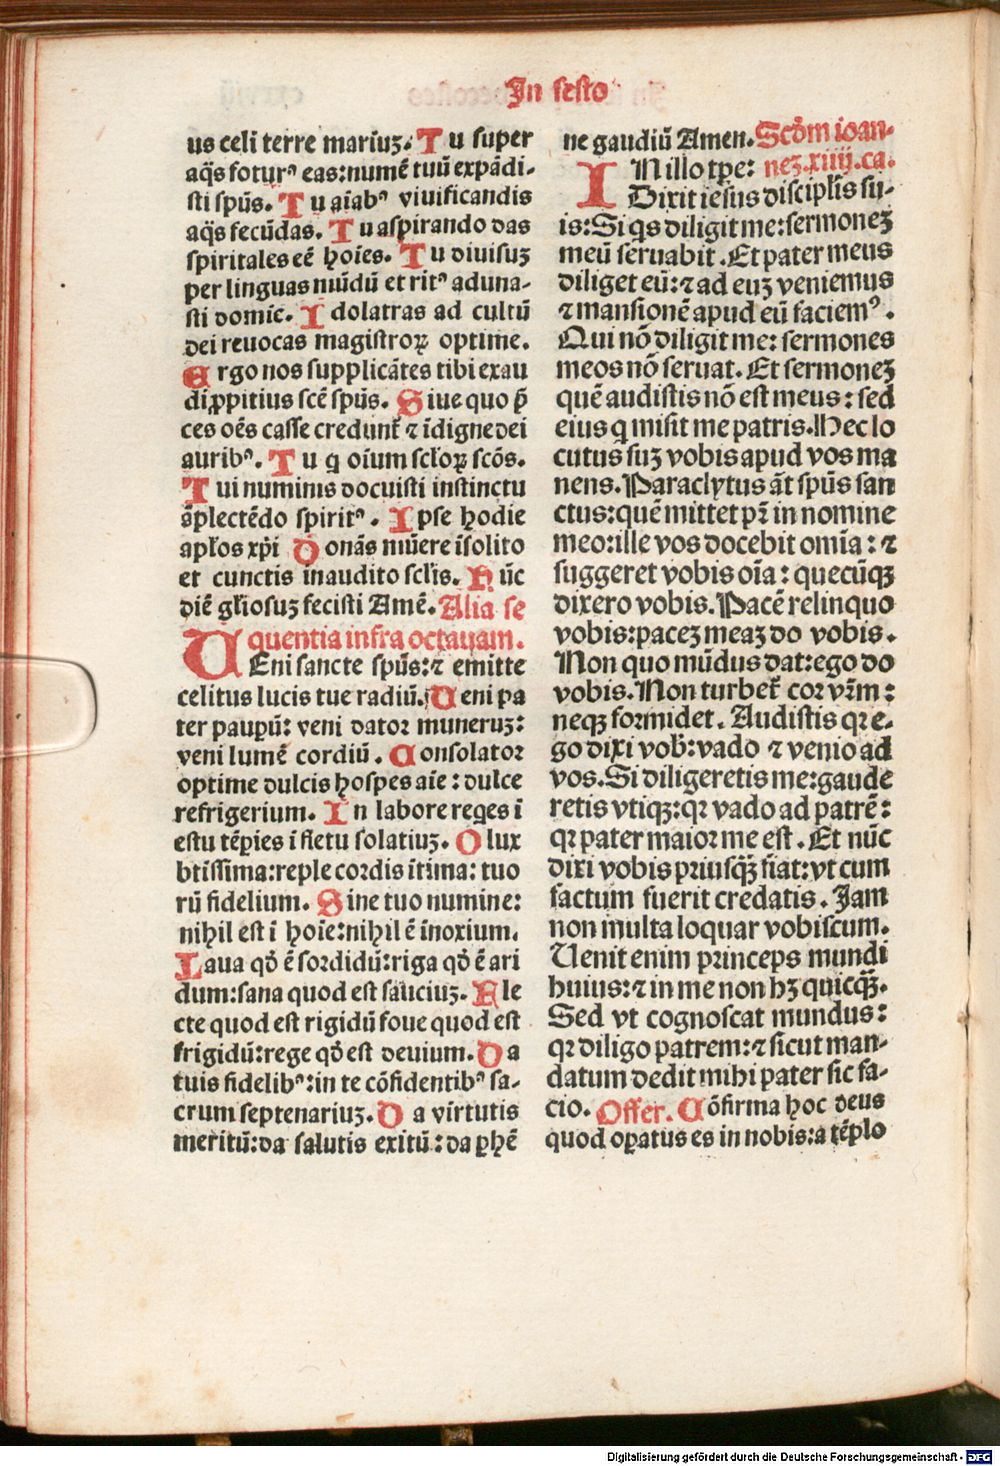 In festo
us celi terre mariuʒ. Tu super
aq̃s foturꝰ eas: numẽ tuũ expãdi-
sti spũs. Tu aĩabꝰ viuificandis
aq̃s fecũdas. Tu aspirando das
spiritales eẽ hoĩes. Tu diuisuʒ
per linguas mũdũ et ritꝰ aduna-
sti domiẽ. Idolatras ad cultũ
dei reuocas magistroꝝ optime.
Ergo nos supplicãtes tibi exau
di ꝓpitius scẽ spũs. Siue quo p̃
ces oẽs casse creduntˀ ⁊ ĩdigne dei
auribꝰ. Tu q oĩum sctoꝝ scõs.
Tui numinis docuisti instinctu
ãplectẽdo spiritꝰ. Ipse hodie
apłos xp̃i Donãs mũere ĩsolito
et cunctis inaudito sclĩs. Hũc
diẽ głiosuʒ fecisti Amẽ. Alia se
quentia infra octauam.
UEni sancte spũs: ⁊ emitte
celitus lucis tue radiũ. Ueni pa
ter paupũ: veni dator muneruʒ:
veni lumẽ cordiũ. Consolator
optime dulcis hospes aĩe: dulce
refrigerium. In labore reqes ĩ
estu tẽpies ĩ fletu solatiuʒ. O lux
btissima: reple cordis ĩtima: tuo
rũ fidelium. Sine tuo numine:
nihil est ĩ hoĩe: nihil ẽ ĩnoxium.
Laua qď ẽ sordidũ: riga qď ẽ ari
dum: sana quod est sauciuʒ. Fle
cte quod est rigidũ foue quod est
frigidũ: rege qď est deuium. Da
tuis fidelibꝰ: in te cõfidentibꝰ sa-
crum septenariuʒ. Da virtutis
meritũ: da salutis exitũ: da ꝑhẽ
ne gaudiũ Amen. Scďm ioan-
neʒ. xiiij. ca.
IN illo tꝑe:
Dixit iesus disciplĩs su-
is: Si q̃s diligit me: sermoneʒ
meũ seruabit. Et pater meus
diliget eũ: ⁊ ad euʒ veniemus
⁊ mansionẽ apud eũ faciemꝰ.
Qui nõ diligit me: sermones
meos nõ seruat. Et sermoneʒ
quẽ audistis nõ est meus: sed
eius q misit me patris. Hec lo
cutus suʒ vobis apud vos ma
nens. Paraclytus ãt spũs san
ctus: quẽ mittet pr̃ in nomine
meo: ille vos docebit omĩa: ⁊
suggeret vobis oĩa: quecũqʒ
dixero vobis. Pacẽ relinquo
vobis: paceʒ meaʒ do vobis.
Non quo mũdus dat: ego do
vobis. Non turbetˀ cor vr̃m:
neqʒ formidet. Audistis qꝛ e-
go dixi vob: vado ⁊ venio ad
vos. Si diligeretis me: gaude
retis vtiqʒ: qꝛ vado ad patrẽ:
qꝛ pater maior me est. Et nũc
dixi vobis priusq̃ʒ fiat: vt cum
factum fuerit credatis. Iam
non multa loquar vobiscum.
Uenit enim princeps mundi
huius: ⁊ in me non hʒ quicq̃ʒ.
Sed vt cognoscat mundus:
qꝛ diligo patrem: ⁊ sicut man-
datum dedit mihi pater sic fa-
cio. Offer. Cõfirma hoc deus
quod oꝑatus es in nobis: a tẽplo
Digitalisierung gefördert durch die Deutsche Forschungsgemeinschaft - DFG